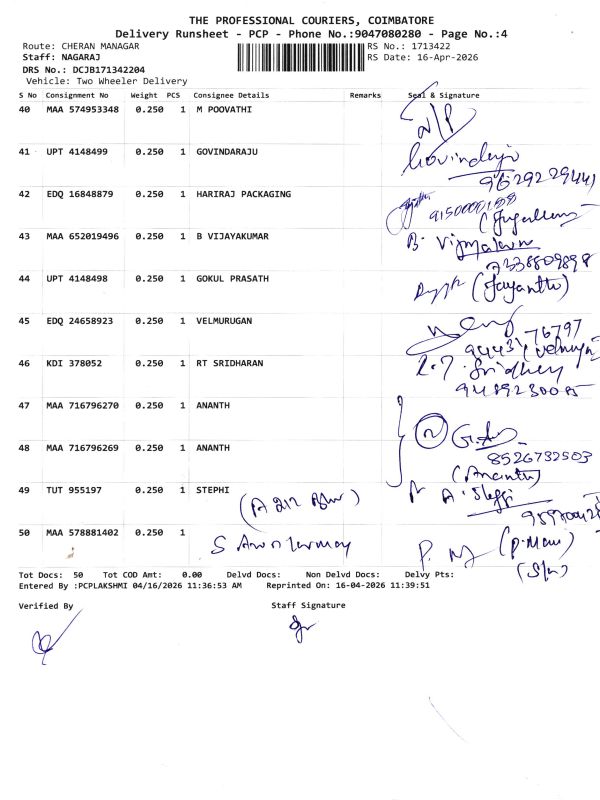 THE PROFESSIONAL COURIERS, COIMBATORE
Delivery Runsheet - PCP - Phone No.:9047080280 - Page No.:4
Route: CHERAN MANAGAR
RS No.: 1713422
Staff: NAGARAJ
RS Date: 16-Apr-2026
DRS No.: DCJB171342204
Vehicle: Two Wheeler Delivery
S No Consignment No Weight PCS Consignee Details Remarks Seal & Signature
40 MAA 574953348 0.250 1 M POOVATHI
N/P
41 UPT 4148499 0.250 1 GOVINDARAJU
Govindaraju
9629229441
42 EDQ 16848879 0.250 1 HARIRAJ PACKAGING
43 MAA 652019496 0.250 1 B VIJAYAKUMAR
B. Vijayakumar
7338809898
44 UPT 4148498 0.250 1 GOKUL PRASATH
(Jayanthi)
45 EDQ 24658923 0.250 1 VELMURUGAN
76797
94431
46 KDI 378052 0.250 1 RT SRIDHARAN
R.T. Sridhar
47 MAA 716796270 0.250 1 ANANTH
48 MAA 716796269 0.250 1 ANANTH
2
8526732503
(Ananth)
49 TUT 955197 0.250 1 STEPHI
A. Steffi
50 MAA 578881402 0.250 1
(P. Mani)
(S/n)
Tot Docs: 50 Tot COD Amt: 0.00 Delvd Docs: Non Delvd Docs: Delvy Pts:
Entered By :PCPLAKSHMI 04/16/2026 11:36:53 AM Reprinted On: 16-04-2026 11:39:51
Verified By Staff Signature